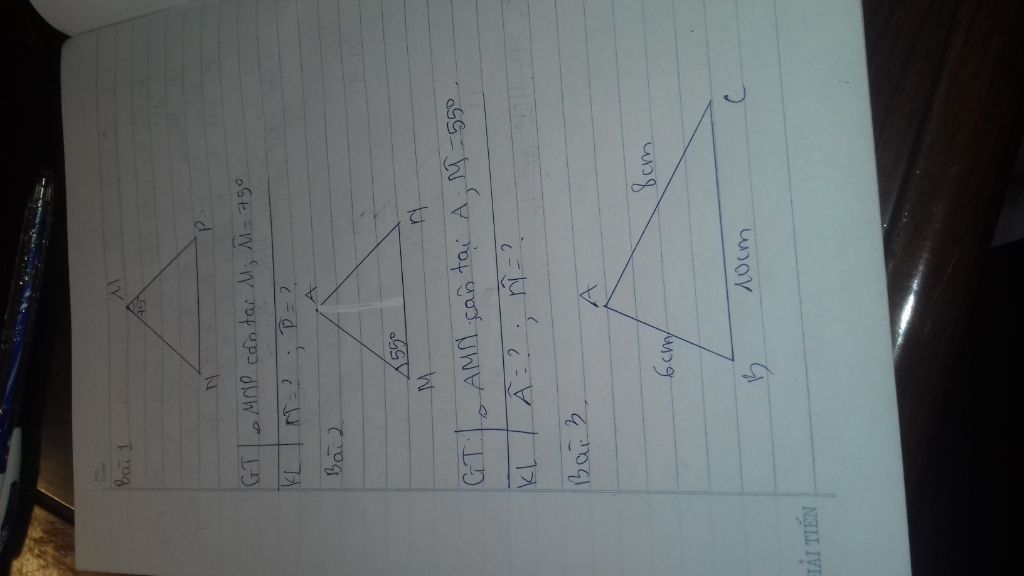 Bài 1
M
75°
N
P
GT △MNP cân tại M, M̂ = 75°
KL N̂ = ? ; P̂ = ?
Bài 2
A
55°
M
N
GT △AMN cân tại A, M̂ = 55°.
KL Â = ? ; N̂ = ?
Bài 3.
A
6cm
8cm
B
10cm
C
HẢI TIẾN